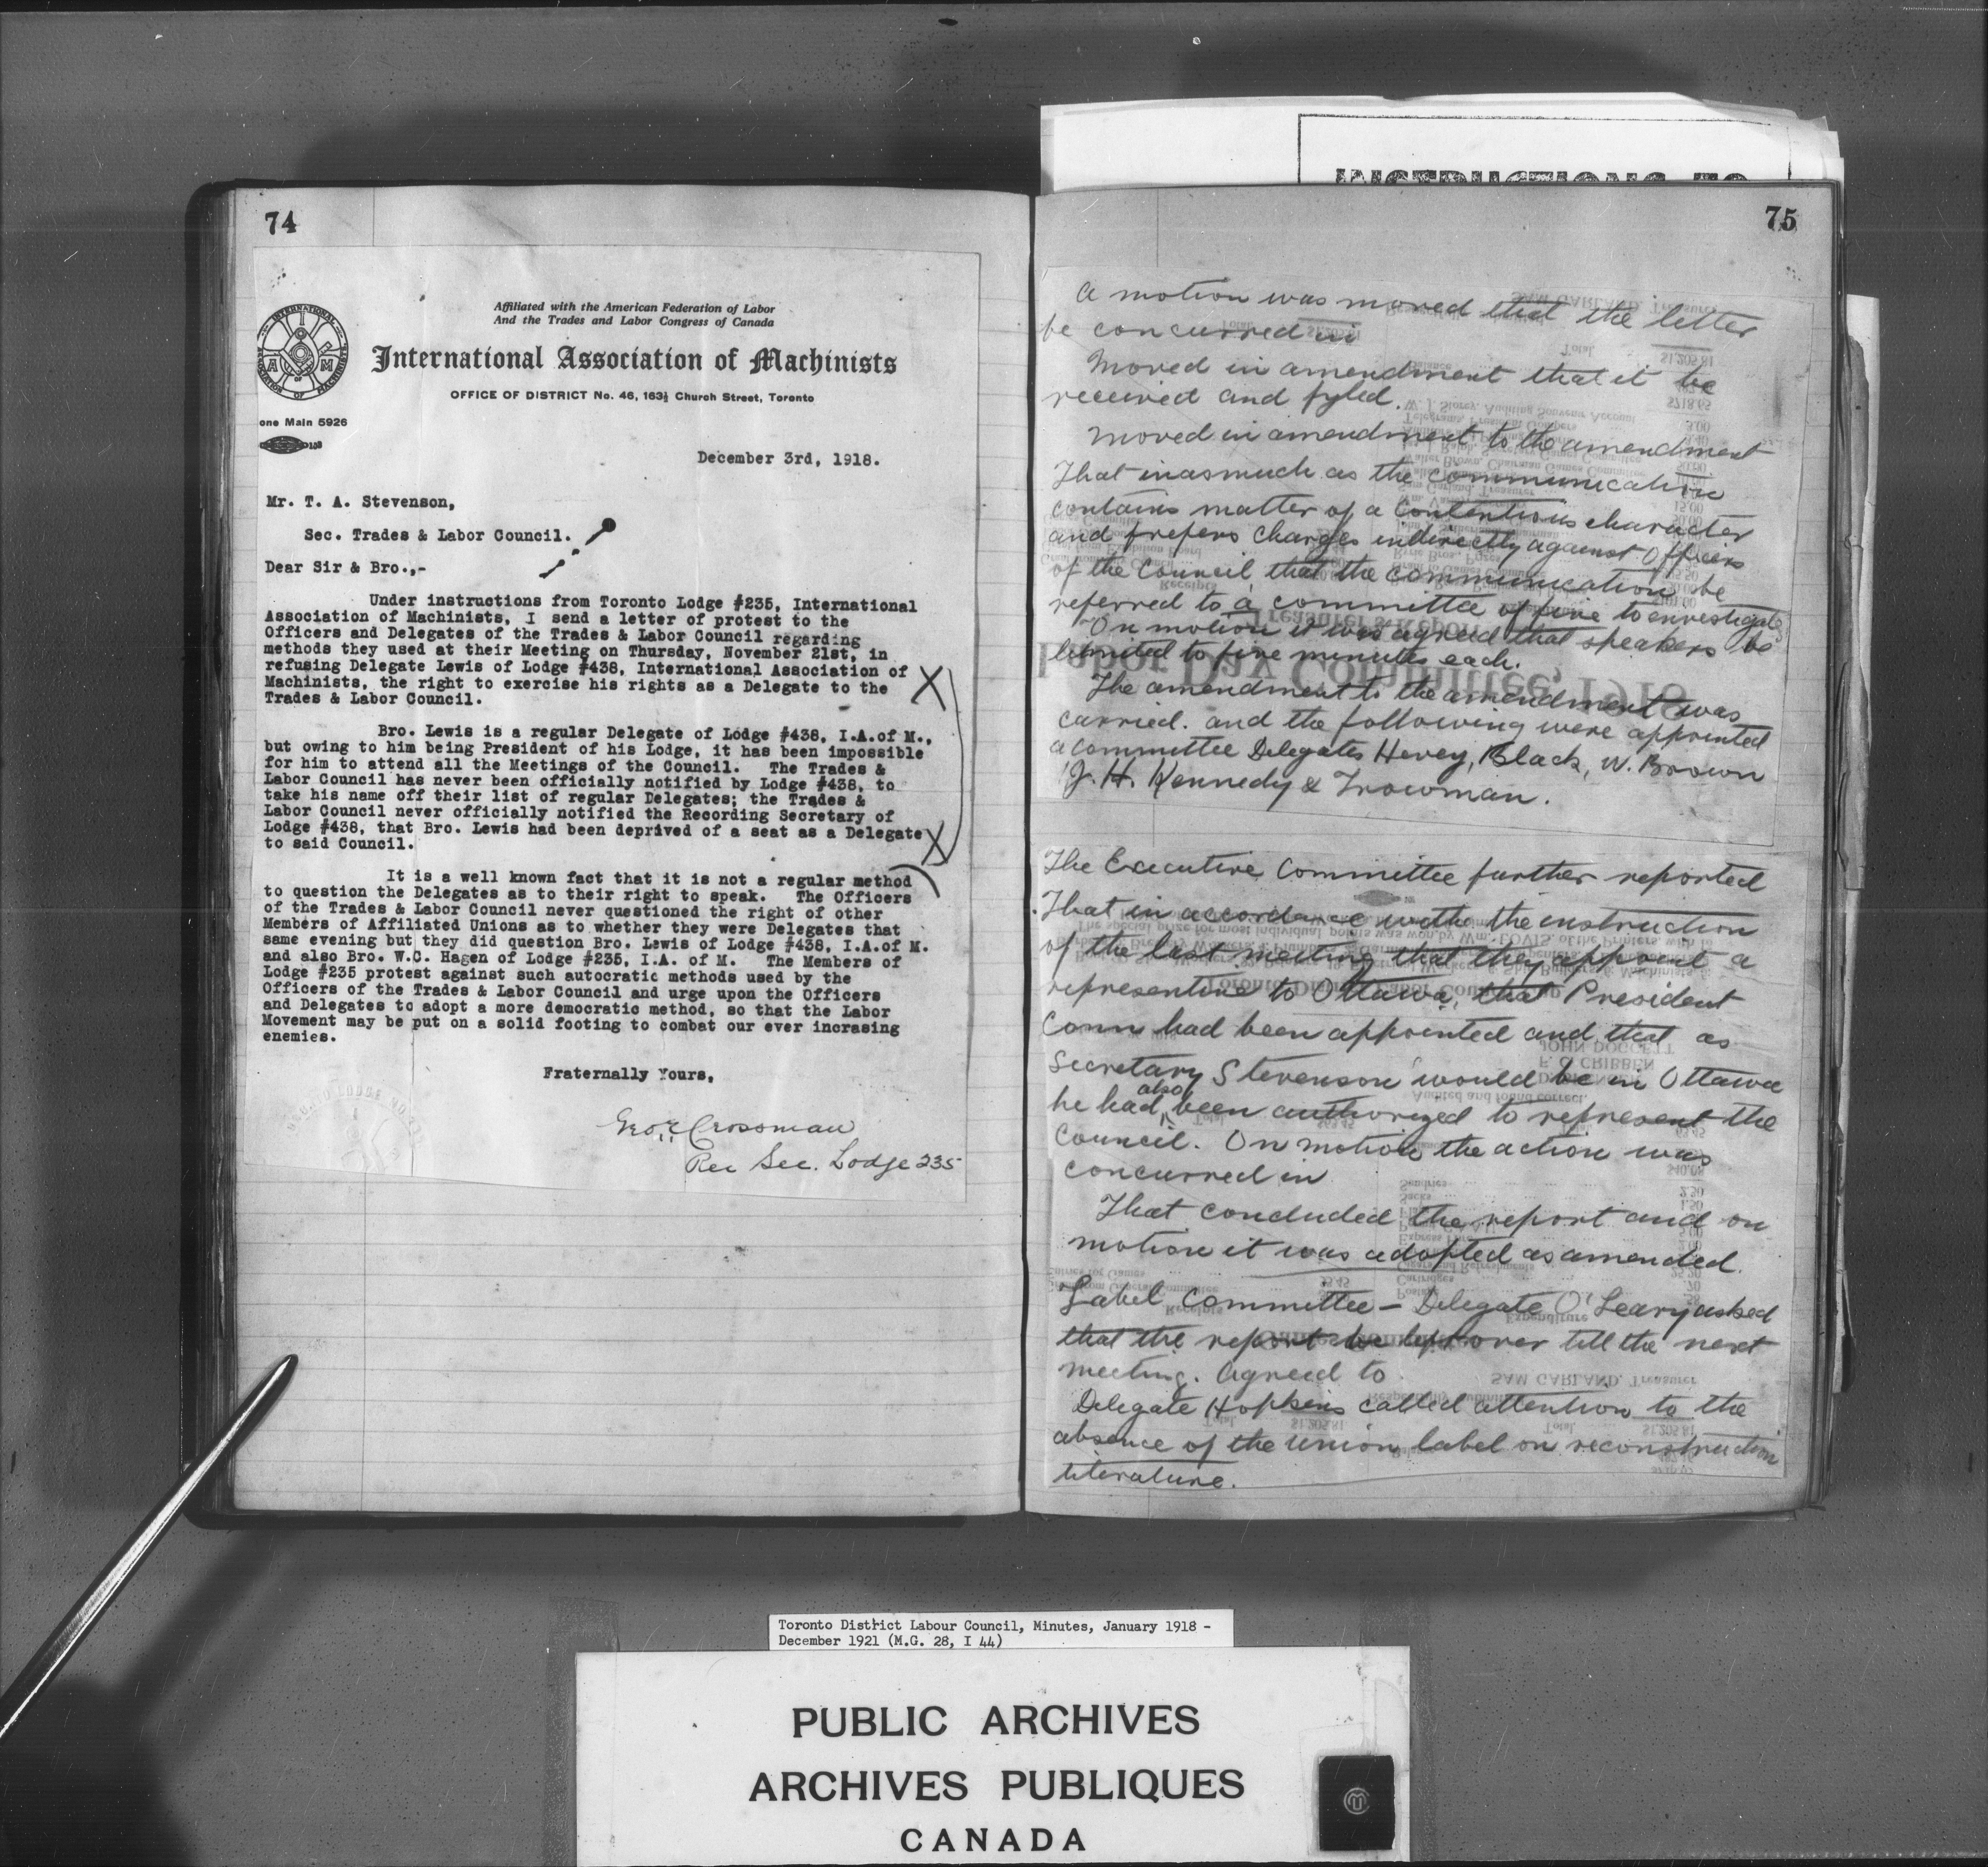 INSTRUCTIONS TO
74
Affiliated with the American Federation of Labor
And the Trades and Labor Congress of Canada
International Association of Machinists
OFFICE OF DISTRICT No. 46, 163½ Church Street, Toronto
one Main 5926
December 3rd, 1918.
Mr. T. A. Stevenson,
Sec. Trades & Labor Council.
Dear Sir & Bro.,-
Under instructions from Toronto Lodge #235, International
Association of Machinists, I send a letter of protest to the
Officers and Delegates of the Trades & Labor Council regarding
methods they used at their Meeting on Thursday, November 21st, in
refusing Delegate Lewis of Lodge #438, International Association of
Machinists, the right to exercise his rights as a Delegate to the
Trades & Labor Council.
Bro. Lewis is a regular Delegate of Lodge #438, I.A.of M.,
but owing to him being President of his Lodge, it has been impossible
for him to attend all the Meetings of the Council. The Trades &
Labor Council has never been officially notified by Lodge #438, to
take his name off their list of regular Delegates; the Trades &
Labor Council never officially notified the Recording Secretary of
Lodge #438, that Bro. Lewis had been deprived of a seat as a Delegate
to said Council.
It is a well known fact that it is not a regular method
to question the Delegates as to their right to speak. The Officers
of the Trades & Labor Council never questioned the right of other
Members of Affiliated Unions as to whether they were Delegates that
same evening but they did question Bro. Lewis of Lodge #438, I.A.of M.
and also Bro. W.C. Hagen of Lodge #235, I.A. of M. The Members of
Lodge #235 protest against such autocratic methods used by the
Officers of the Trades & Labor Council and urge upon the Officers
and Delegates to adopt a more democratic method, so that the Labor
Movement may be put on a solid footing to combat our ever incrasing
enemies.
Fraternally Yours,
Crossman
Rec Sec. Lodge 235
75
A motion was moved that the letter
be concurred in
Moved in amendment that it be
received and fyled.
Moved in amendment to the amendment
That inasmuch as the communication
contains matter of a contentious character
and prefers charges indirectly against Officers
of the Council, that the communication be
referred to a committee of five to envestigate
On motion it was agreed that speakers be
limited to five minutes each.
The amendment to the amendment was
carried. and the following were appointed
a committee Delegates Hevey, Black, W. Brown
J. H. Kennedy & Trowman.
The Executive Committee further reported
That in accordance withe the instruction
of the last meeting that they appoint a
representive to Ottawa, that President
Conn had been appointed and that as
Secretary Stevenson would be in Ottawa
he had also been authorized to represent the
Council. On motion the action was
concurred in
That concluded the report and on
motion it was adopted as amended.
Label Committee - Delegate O'Leary asked
that the report be left over till the next
meeting. Agreed to
Delegate Hopkins called attention to the
absence of the union label on reconstruction
literature.
Toronto District Labour Council, Minutes, January 1918 -
December 1921 (M.G. 28, I 44)
PUBLIC ARCHIVES
ARCHIVES PUBLIQUES
CANADA